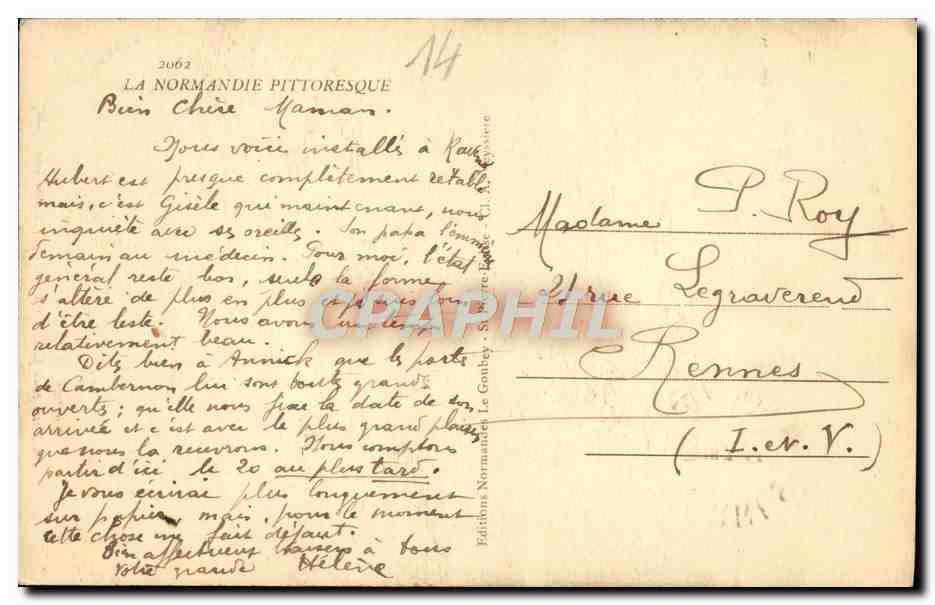 14
2062
LA NORMANDIE PITTORESQUE
Bien Chère Maman.
Nous voici installés à
Hubert est presque complètement retabli
mais, c'est Gisèle qui maintenant, nous
inquiète avec ses oreilles. Son papa l'emmène
demain au médecin. Pour moi, l'état
général reste bon, seule la forme
s'altère de plus en plus et je suis loin
d'être leste. Nous avons un temps
relativement beau.
Dites bien à Annick que les portes
de Cambernon lui sont toutes grandes
ouvertes ; qu'elle nous fixe la date de son
arrivée et c'est avec le plus grand plaisir
que nous la recevrons. Nous comptons
partir d'ici le 20 au plus tard.
Je vous écrirai plus longuement
sur papier, mais, pour le moment
cette chose me fait défaut.
Bien affectueux baisers à tous
Votre grande Hélène
Editions Normandes Le Goubey - St Pierre-Eglise - Cl. A.
Madame P. Roy
21 rue Legraverend
Rennes
(I.et.V.)
CPAPHIL